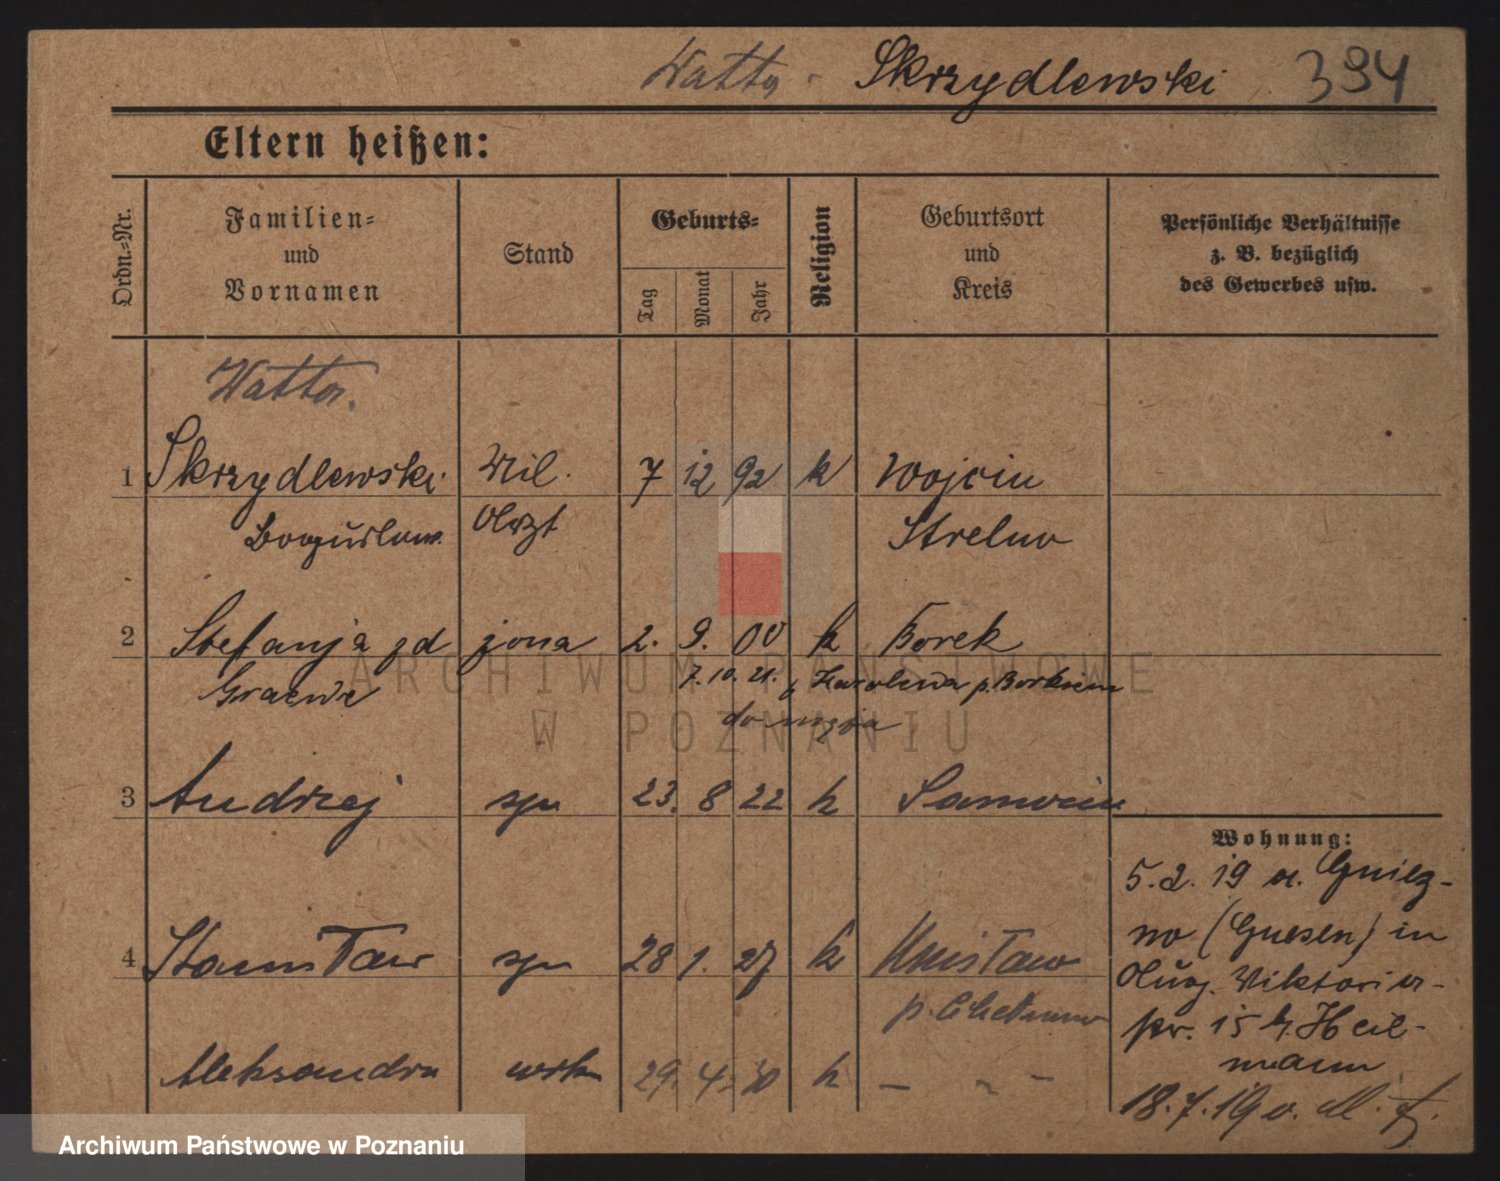 Watta - Skrzydlewski 394
Eltern heißen:
Ordn.=Nr.
Familien=
und
Vornamen
Stand
Geburts=
Tag Monat Jahr
Religion
Geburtsort
und
Kreis
Persönliche Verhältnisse
z. B. bezüglich
des Gewerbes usw.
Watta
1 Skrzydlewski Mil. 7 12 92 k Wojcin
Bogusław Arzt Strelno
2 Stefanja zd żona 2. 9. 00 k Borek
Graewe 7.10.21. Karolewa p. Borkiem
do męża
3 Andrzej syn 23. 8 22 k
Wohnung:
5.2.19 a. Gniez-
no (Gnesen) in
Viktoria-
4 Stanisław syn 28 1. 27 k Unisław
p. Chełmno
str. 15 b. Heil-
mann
Aleksandra 29. 4. 30 k — " —
18.7.19
ARCHIWUM PAŃSTWOWE
W POZNANIU
Archiwum Państwowe w Poznaniu